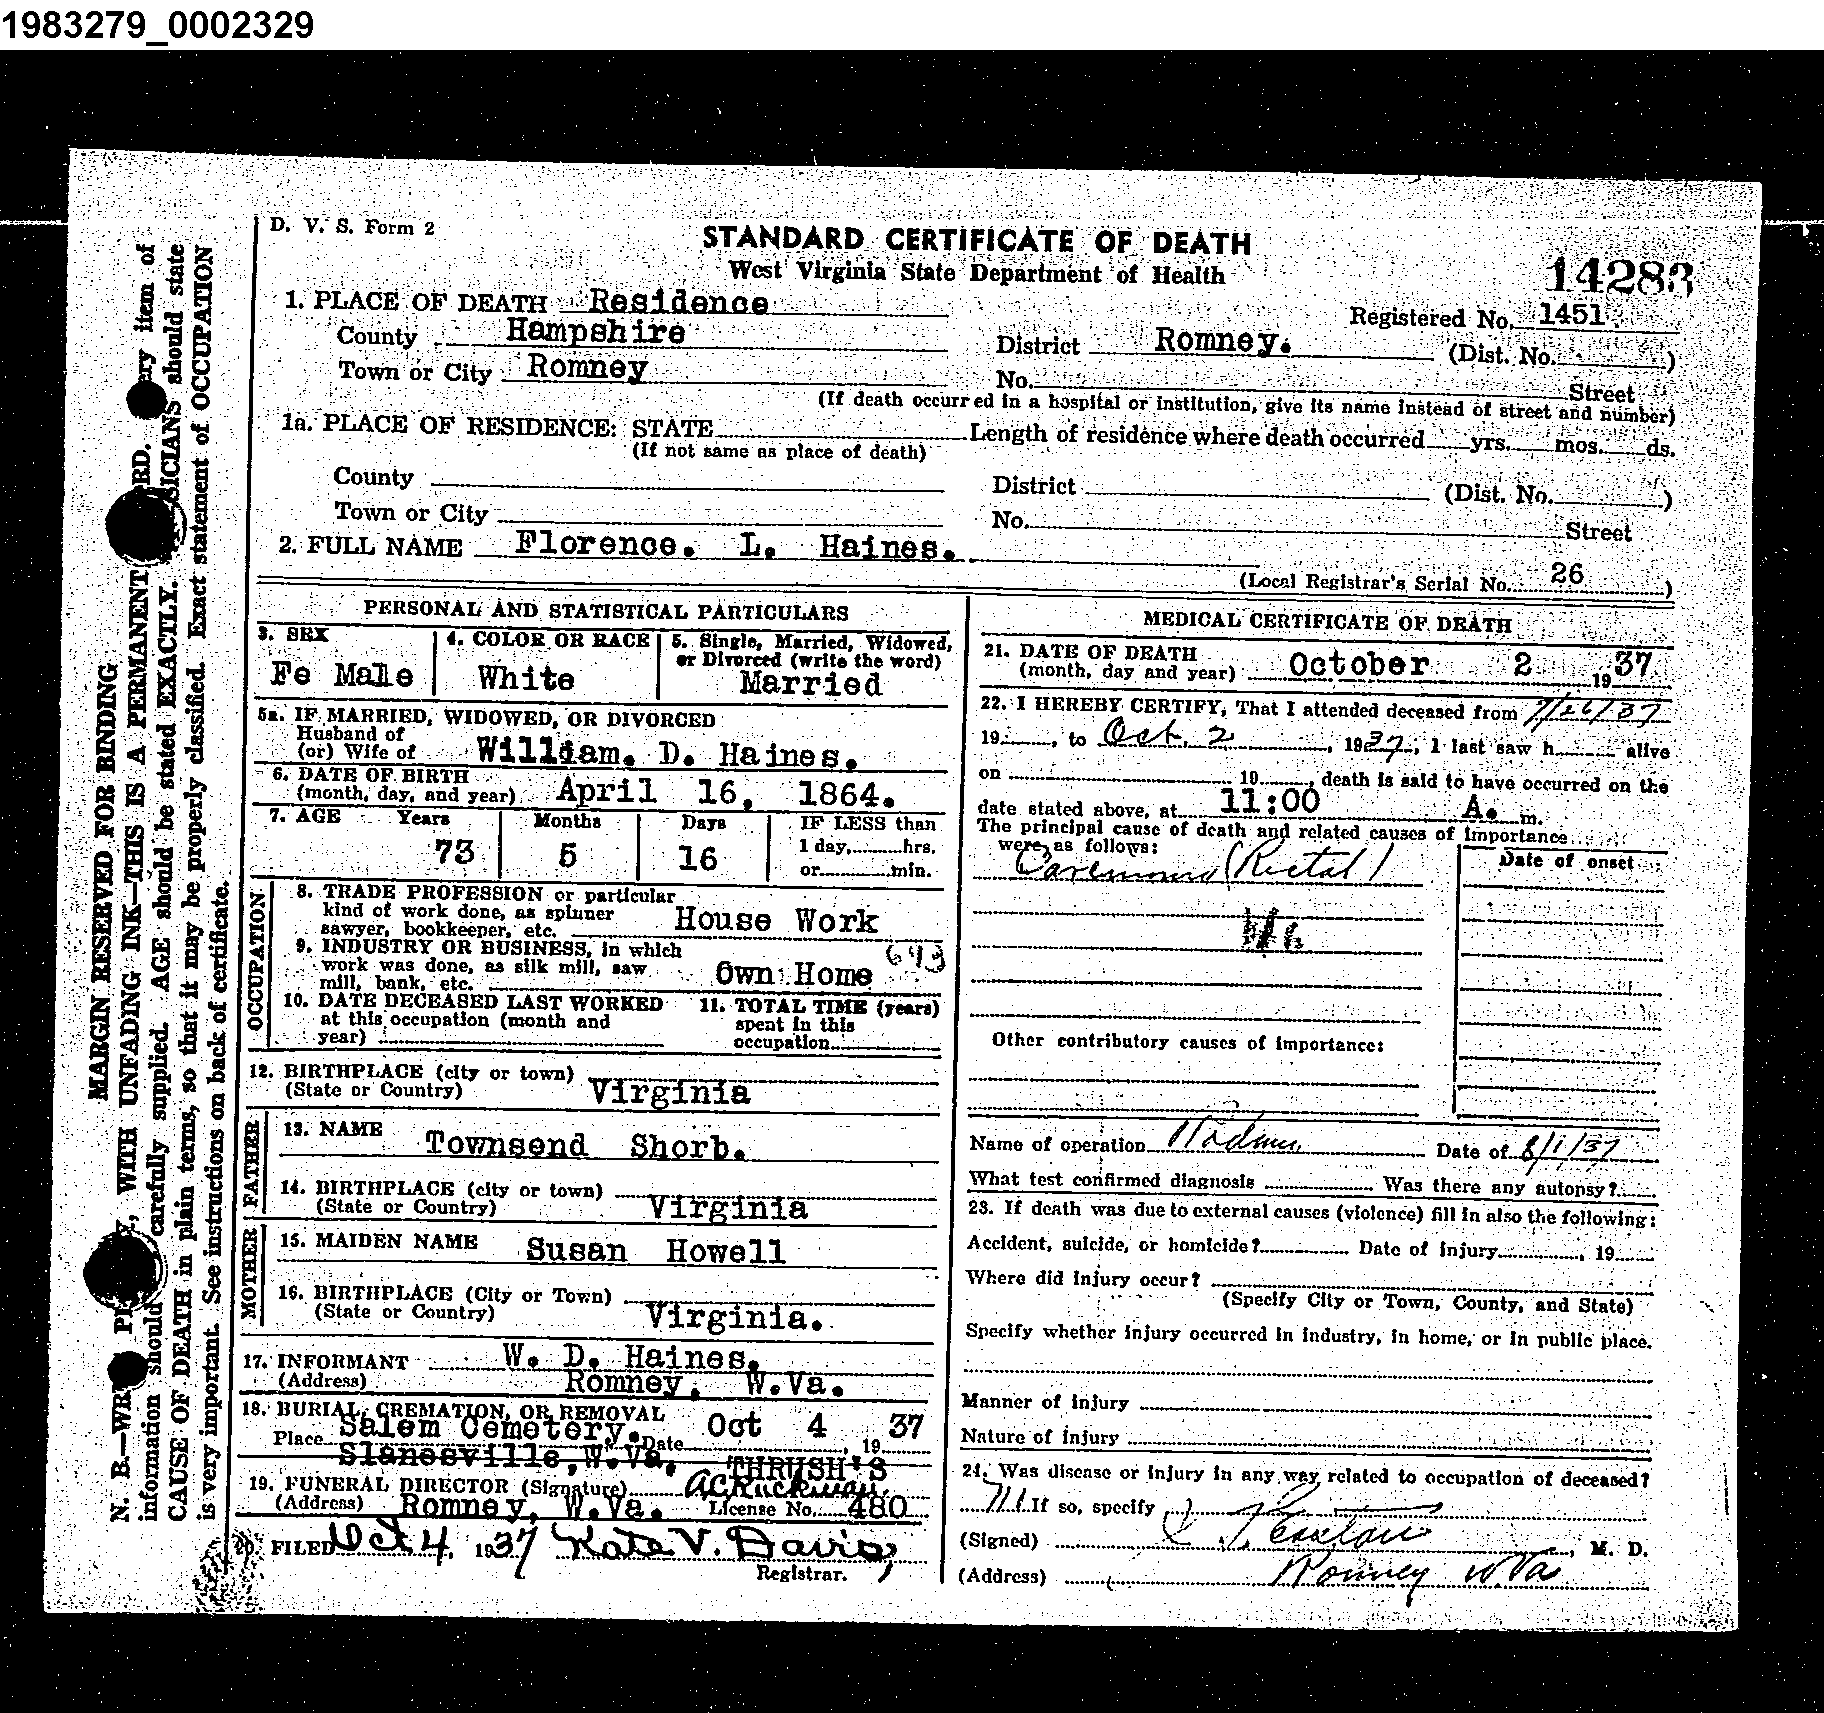 1983279_0002329
D. V. S. Form 2
STANDARD CERTIFICATE OF DEATH
West Virginia State Department of Health
14283
1. PLACE OF DEATH Residence
Registered No. 1451.
County Hampshire
District Romney. (Dist. No. )
Town or City Romney
No. Street
(If death occurred in a hospital or institution, give its name instead of street and number)
1a. PLACE OF RESIDENCE: STATE Length of residence where death occurred yrs. mos. ds.
(If not same as place of death)
County District (Dist. No. )
Town or City No. Street
2. FULL NAME Florence. L. Haines.
(Local Registrar's Serial No. 26 )
PERSONAL AND STATISTICAL PARTICULARS
3. SEX Fe Male
4. COLOR OR RACE White
5. Single, Married, Widowed,
or Divorced (write the word)
Married
5a. IF MARRIED, WIDOWED, OR DIVORCED
Husband of
(or) Wife of William. D. Haines.
6. DATE OF BIRTH
(month, day, and year) April 16, 1864.
7. AGE Years Months Days IF LESS than
73 5 16 1 day, hrs.
or min.
OCCUPATION
8. TRADE PROFESSION or particular
kind of work done, as spinner
sawyer, bookkeeper, etc. House Work
9. INDUSTRY OR BUSINESS, in which
work was done, as silk mill, saw
mill, bank, etc. Own Home
643
10. DATE DECEASED LAST WORKED
at this occupation (month and
year)
11. TOTAL TIME (years)
spent in this
occupation
12. BIRTHPLACE (city or town)
(State or Country) Virginia
FATHER
13. NAME Townsend Shorb.
14. BIRTHPLACE (city or town)
(State or Country) Virginia
MOTHER
15. MAIDEN NAME Susan Howell
16. BIRTHPLACE (City or Town)
(State or Country) Virginia.
17. INFORMANT W. D. Haines.
(Address) Romney, W.Va.
18. BURIAL, CREMATION, OR REMOVAL
Place Salem Cemetery. Date Oct 4, 19 37
Slanesville, W.Va.
THRUSH'S
19. FUNERAL DIRECTOR (Signature) AC Ruckman.
(Address) Romney, W.Va. License No. 480
20. FILED Oct, 4, 1937 Kate V. Davis,
Registrar.
MEDICAL CERTIFICATE OF DEATH
21. DATE OF DEATH
(month, day and year) October 2 19 37
22. I HEREBY CERTIFY, That I attended deceased from 7/26/37
19 , to Oct. 2, 1937, I last saw h alive
on 19 , death is said to have occurred on the
date stated above, at 11:00 A. m.
The principal cause of death and related causes of importance
were as follows: Date of onset
(Rectal)
Other contributory causes of importance:
Name of operation Radium Date of 8/1/37
What test confirmed diagnosis Was there any autopsy?
23. If death was due to external causes (violence) fill in also the following:
Accident, suicide, or homicide? Date of injury , 19
Where did injury occur?
(Specify City or Town, County, and State)
Specify whether injury occurred in industry, in home, or in public place.
Manner of injury
Nature of injury
24. Was disease or injury in any way related to occupation of deceased?
If so, specify
(Signed) , M. D.
(Address) Romney W Va
MARGIN RESERVED FOR BINDING
WITH UNFADING INK—THIS IS A PERMANENT
information should carefully supplied. AGE should be stated EXACTLY. should state
CAUSE OF DEATH in plain terms, so that it may be properly classified. Exact statement of OCCUPATION
is very important. See instructions on back of certificate.